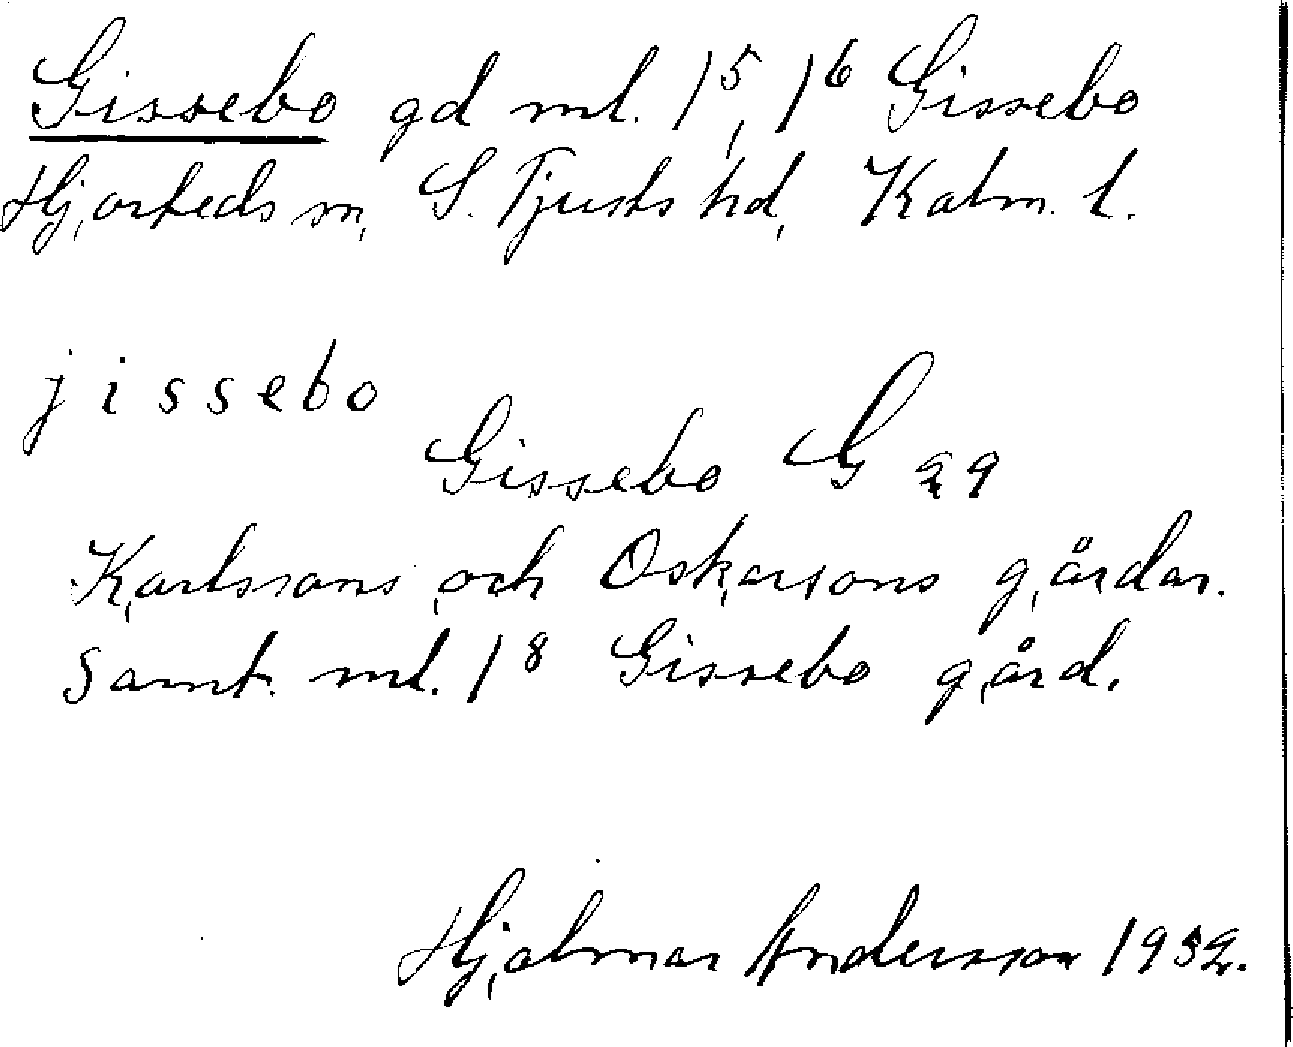 Gissebo gd ml. 1⁵, 1⁶ Gissebo
Hjorteds sn, S. Tjusts hd, Kalm. l.
jissebo
Gissebo G 29
Karlssons och Oskarsons gårdar.
Samt. ml. 1⁸ Gissebo gård.
Hjalmar Andersson 1932.